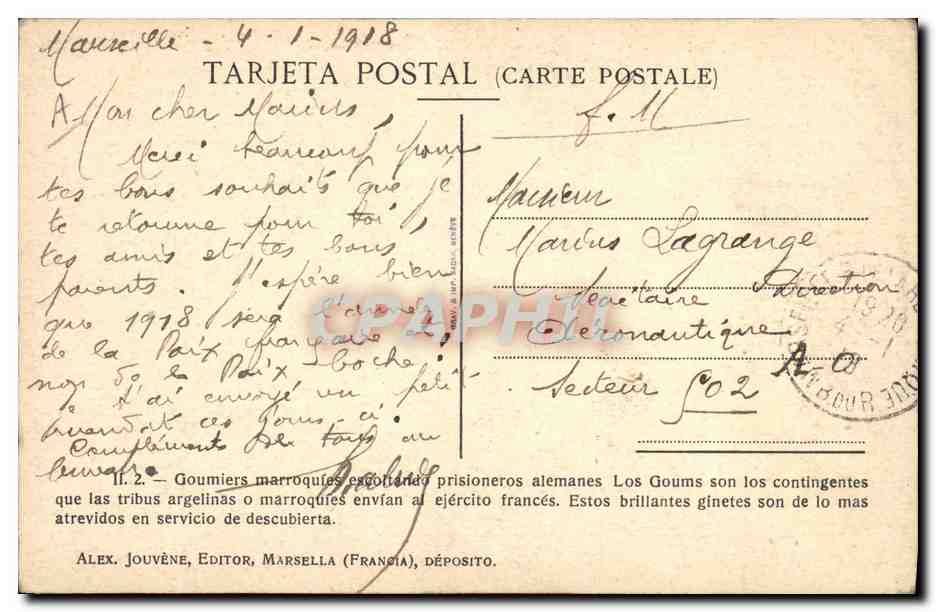 Marseille - 4 - 1 - 1918
TARJETA POSTAL (CARTE POSTALE)
A Mon cher Marius,
Merci beaucoup pour
tes bons souhaits que je
te retourne pour toi,
tes amis et tes bons
parents. J'espère bien
que 1918 sera l'année
de la Paix française et
non de la Paix boche.
J'ai envoyé un petit
ces jours-ci.
Compliments de tous au
F. M
Monsieur
Marius Lagrange
Secrétaire Direction
Aéronautique
A O
Secteur 502
GRAV. & IMP. SADAG, GENÈVE
CPAPHIL
II. 2. — Goumiers marroquíes escoltando prisioneros alemanes Los Goums son los contingentes
que las tribus argelinas o marroquíes envían al ejército francés. Estos brillantes ginetes son de lo mas
atrevidos en servicio de descubierta.
ALEX. JOUVÈNE, EDITOR, MARSELLA (FRANCIA), DÉPOSITO.